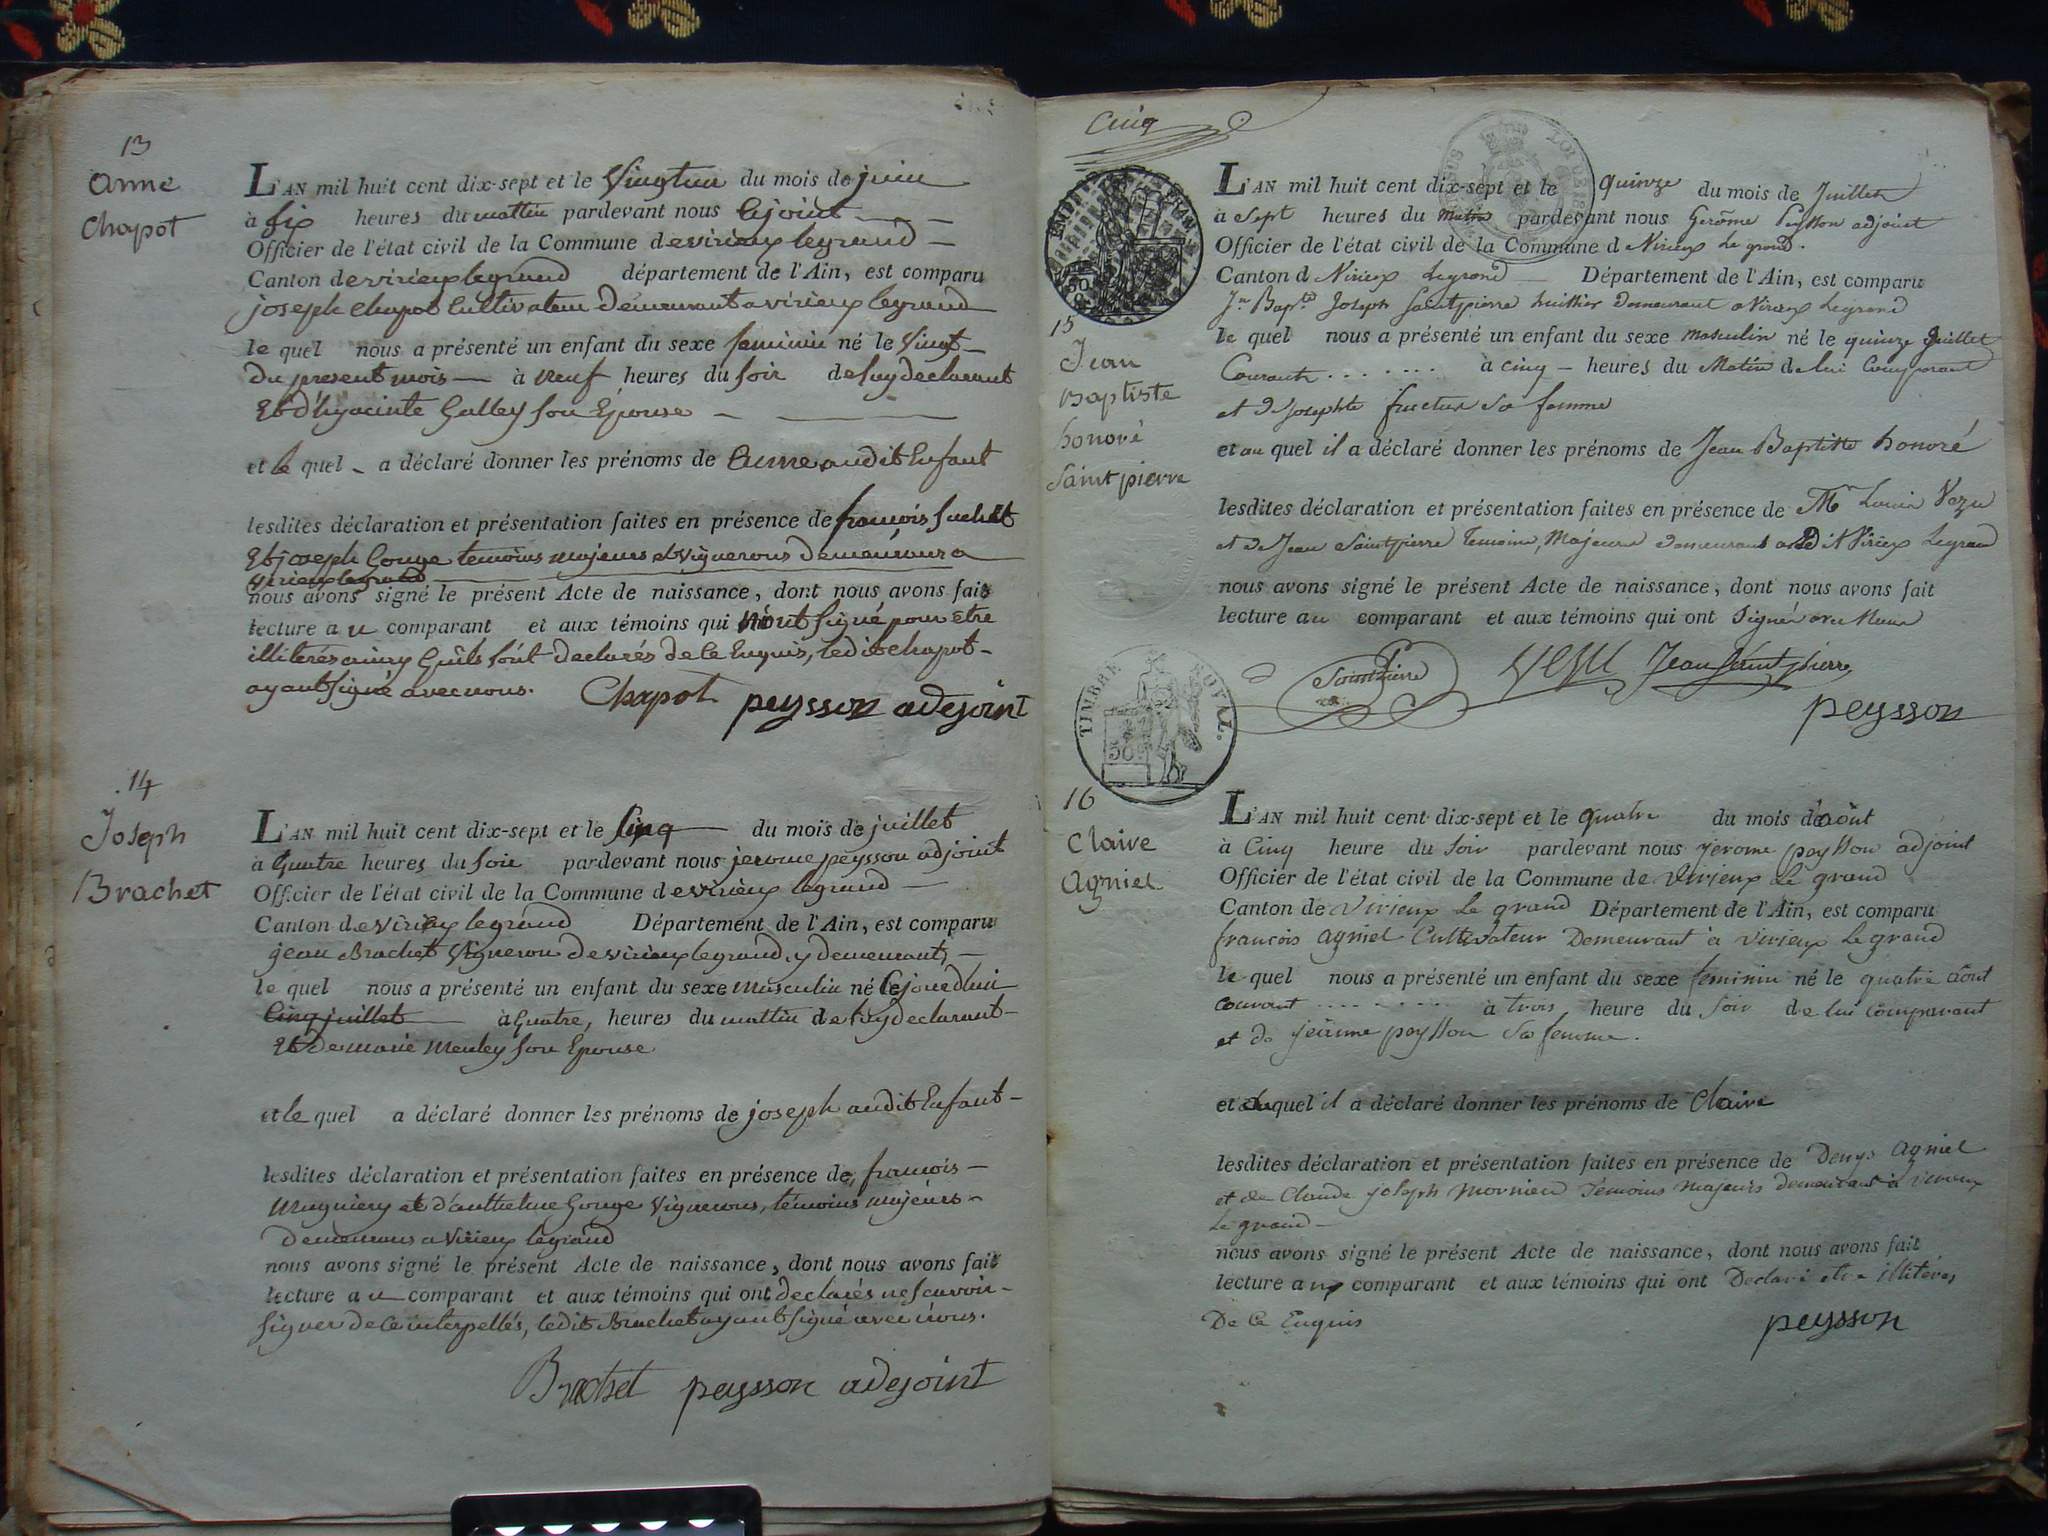 13
anne
Chapot
L'AN mil huit cent dix-sept et le Vingtun du mois de juin
à six heures du mattin pardevant nous adjoint
Officier de l'état civil de la Commune de virieux legrand
Canton de virieux legrand département de l'Ain, est comparu
joseph chapot Cultivateur demeurant a virieux legrand
le quel nous a présenté un enfant du sexe feminin né le Vingt
Du present mois à neuf heures du soir de luy declarant
Et d'hyacinte Gallay son Epouse
et le quel a déclaré donner les prénoms de Anne audit Enfant
lesdites déclaration et présentation faites en présence de françois
Et joseph Gouge temoins majeurs et vignerons demeurans a
virieux legrand
nous avons signé le présent Acte de naissance, dont nous avons fait
lecture au comparant et aux témoins qui n'ont signé pour etre
illiterés ainsy qu'ils sont declarés de ce Enquis, ledit chapot
ayant signé avec nous.
Chapot peysson adejoint
14
Joseph
Brachet
L'AN mil huit cent dix-sept et le Cinq du mois de juillet
à Quatre heures du soir pardevant nous jerome peysson adjoint
Officier de l'état civil de la Commune de virieux legrand
Canton de virieux legrand Département de l'Ain, est comparu
jean Brachet Vigneron de virieux legrand, y demeurant,
le quel nous a présenté un enfant du sexe masculin né Cejourdhui
Cinq juillet à Quatre, heures du mattin de luy declarant
Et de marie Meuley son Epouse
et le quel a déclaré donner les prénoms de joseph audit Enfant
lesdites déclaration et présentation faites en présence de françois
et d'anthelme Gouge Vignerons, témoins majeurs
Demeurans a Virieux legrand
nous avons signé le présent Acte de naissance, dont nous avons fait
lecture au comparant et aux témoins qui ont declarés ne scavoir
signer de ce interpellés, ledit Brachet ayant signé avec nous.
Brachet peysson adejoint
Cinq
TIMBRE ROYAL
50
15
Jean
Baptiste
honoré
Saintpierre
L'AN mil huit cent dix-sept et le quinze du mois de Juillet
à sept heures du matin pardevant nous Gerôme Peysson adjoint
Officier de l'état civil de la Commune d Virieux Le grand.
Canton d Virieux Legrand Département de l'Ain, est comparu
Jn Bapte Joseph Saintpierre huissier Demeurant a Virieux Legrand
le quel nous a présenté un enfant du sexe masculin né le quinze Juillet
Courant ........ à cinq heures du Matin de lui Comparant
et de Josephte fructus sa femme
et au quel il a déclaré donner les prénoms de Jean Baptiste honoré
lesdites déclaration et présentation faites en présence de Mr Louis Vezu
et de Jean Saintpierre temoins, Majeurs demeurant audit Virieux Legrand
nous avons signé le présent Acte de naissance, dont nous avons fait
lecture au comparant et aux témoins qui ont signés avec Nous
SaintPierre Vezu Jean Saint pierre
peysson
TIMBRE ROYAL.
50
16
Claire
agniel
L'AN mil huit cent dix-sept et le quatre du mois d'août
à Cinq heure du soir pardevant nous jerome peysson adjoint
Officier de l'état civil de la Commune de Virieux Le grand
Canton de Virieux Le grand Département de l'Ain, est comparu
francois agniel Cultivateur Demeurant à virieux Le grand
le quel nous a présenté un enfant du sexe feminin né le quatre août
courant ........ à trois heure du soir de lui comparant
et de peysson sa femme.
et auquel il a déclaré donner les prénoms de Claire
lesdites déclaration et présentation faites en présence de Denys agniel
et de Claude joseph temoins majeurs demeurant à virieux
Le grand
nous avons signé le présent Acte de naissance, dont nous avons fait
lecture aux comparant et aux témoins qui ont Declaré etre illiterés
De Ce Enquis
peysson